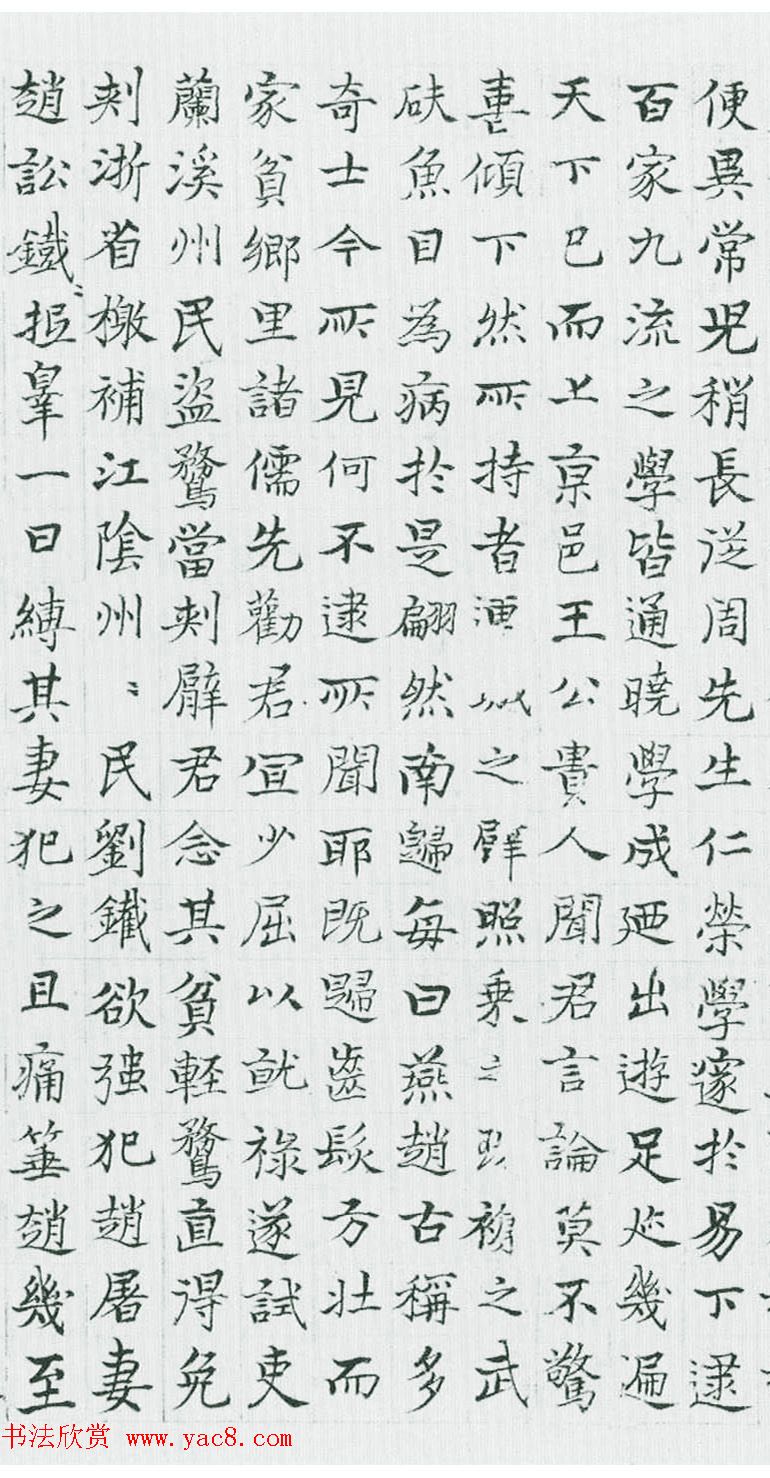 便異常児稍長従周先生仁榮學邃於易下逮
百家九流之學皆通曉學成廼出遊足迹幾遍
天下已而上京邑王公貴人聞君言論莫不驚
畫傾下然所持者連城之璧照乗之珎複之武
砆魚目為病於是翩然南歸每曰燕趙古稱多
奇士今所見何不逮所聞耶既歸齒髪方壮而
家貧鄉里諸儒先勸君宜少屈以就祿遂試吏
蘭溪州民盜鶩當刺臂君念其貧輕鶩直得免
刺浙省檄補江陰州〻民劉鐵欲强犯趙屠妻
趙訟鐵〻拒辠一日縛其妻犯之且痛箠趙幾至
书法欣赏 www.yac8.com